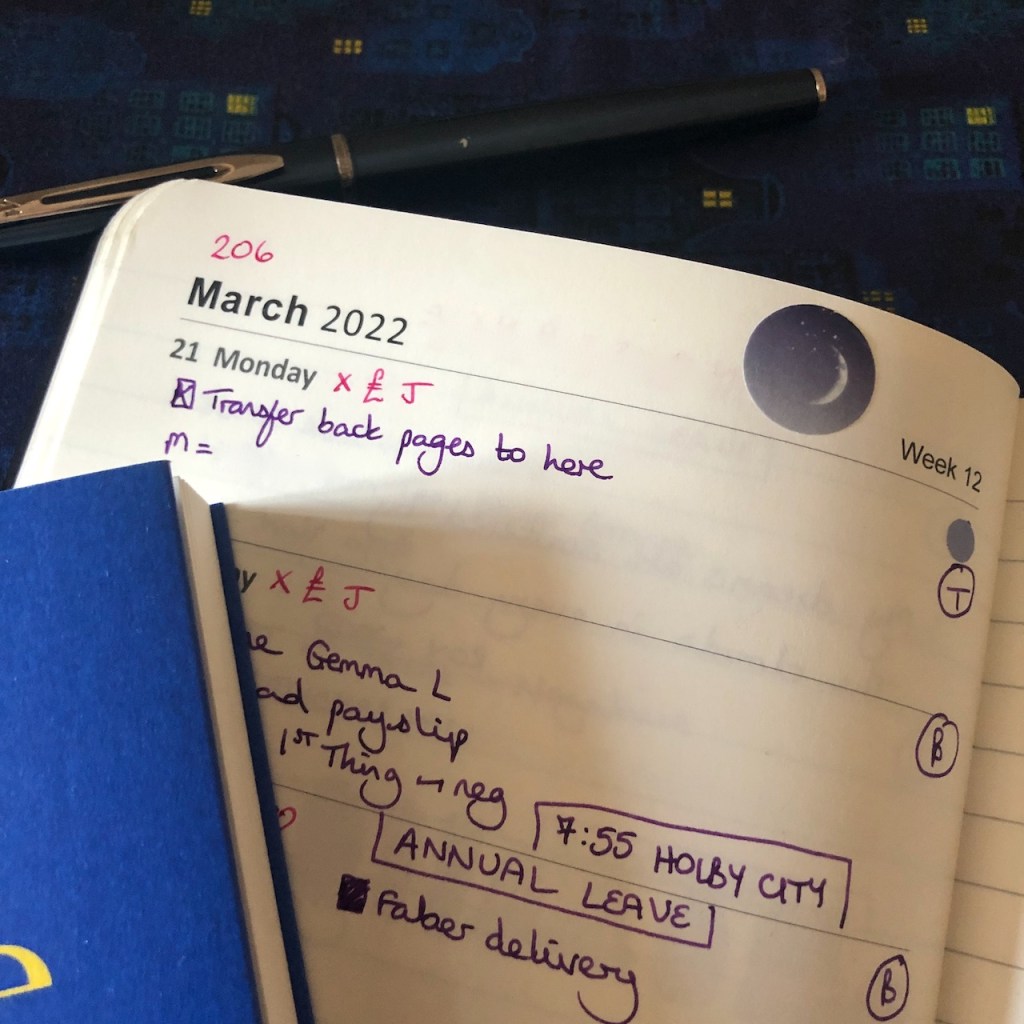 206
March 2022
21 Monday X £ J
Transfer back pages to here
M =
Week 12
T
X £ J
Gemma L
payslip
1ST Thing → neg
B
7:55 HOLBY CITY
ANNUAL LEAVE
Faber delivery
B